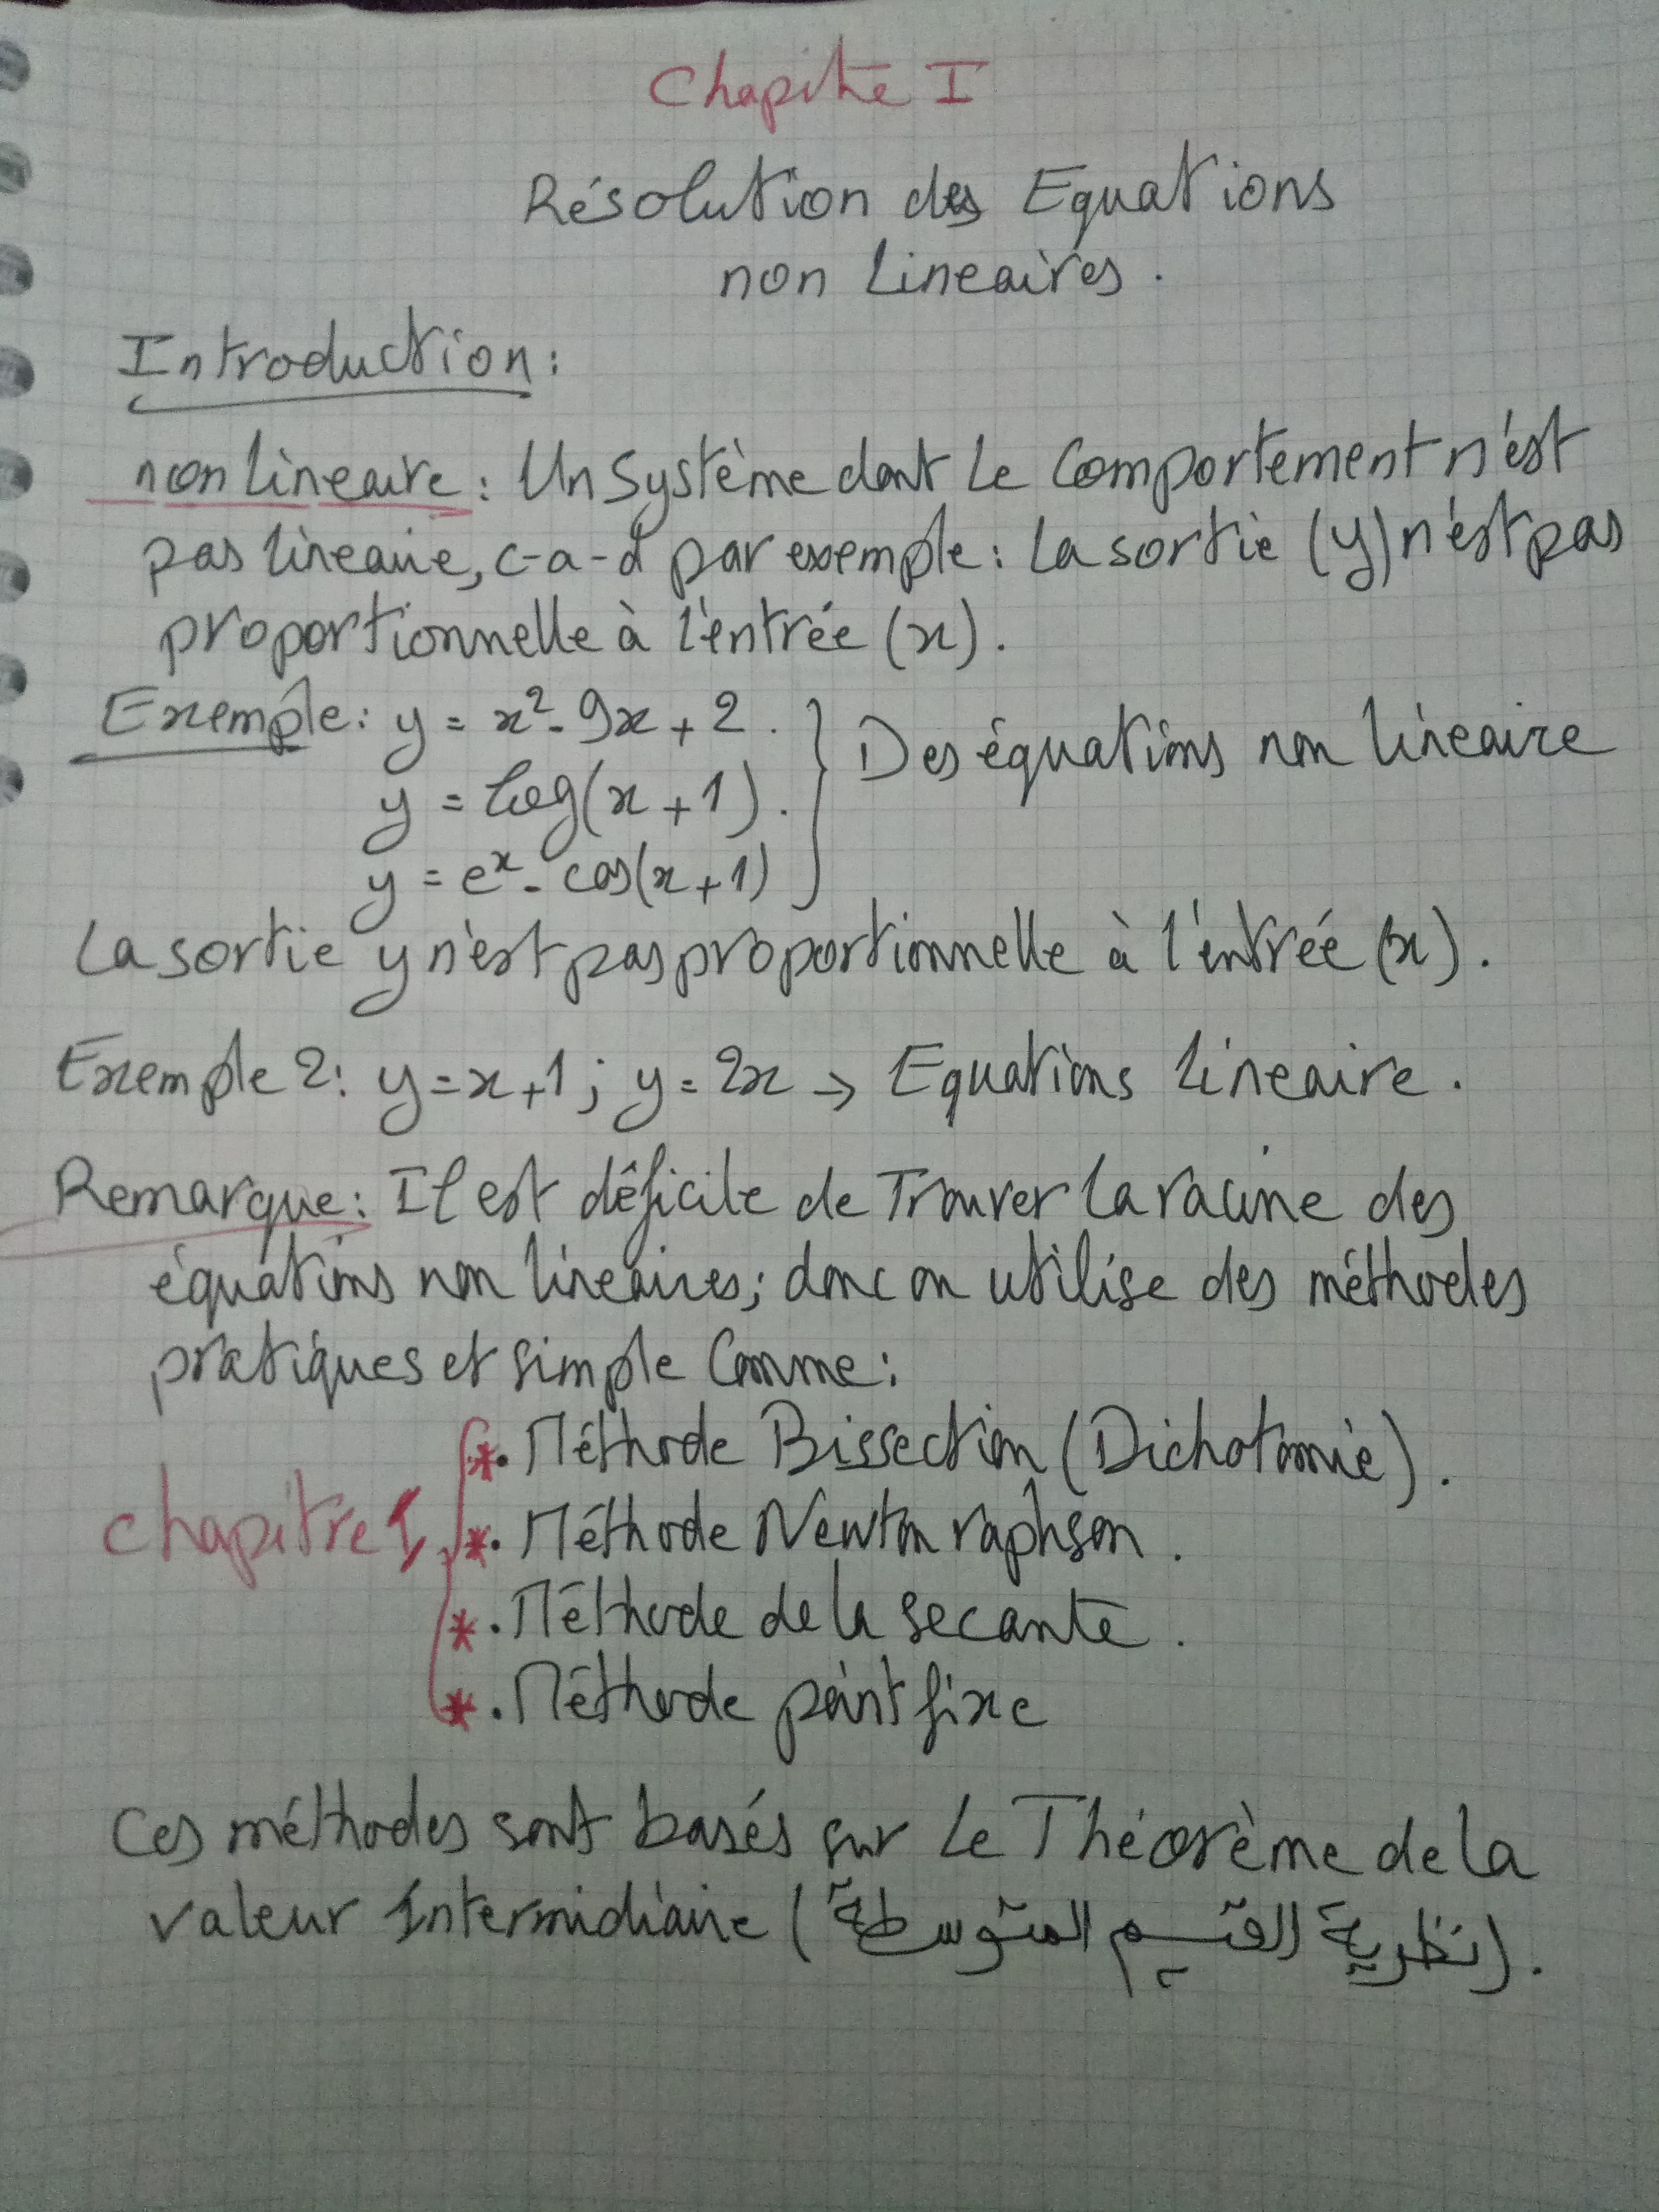 Chapitre I
Résolution des Equations
non Lineaires.
Introduction:
non lineaire: Un Système dont Le Comportement n'est
pas lineaire, c-a-d par exemple: La sortie (y) n'est pas
proportionnelle à l'entrée (x).
Exemple: y = x² - 9x + 2. } Des équations non lineaire
y = log(x + 1).
y = eˣ - cos(x + 1)
La sortie y n'est pas proportionnelle à l'entrée (x).
Exemple 2: y = x + 1; y = 2x → Equations lineaire.
Remarque: Il est déficile de Trouver La racine des
équations non lineaires; donc on utilise des méthodes
pratiques et simple Comme:
*. Méthode Bissection (Dichotomie).
chapitre 1 *. Méthode Newton raphson.
*. Méthode de la secante.
*. Méthode point fixe
Ces méthodes sont basés sur Le Théorème de la
valeur Intermidiaire (نظرية القيم المتوسطة).